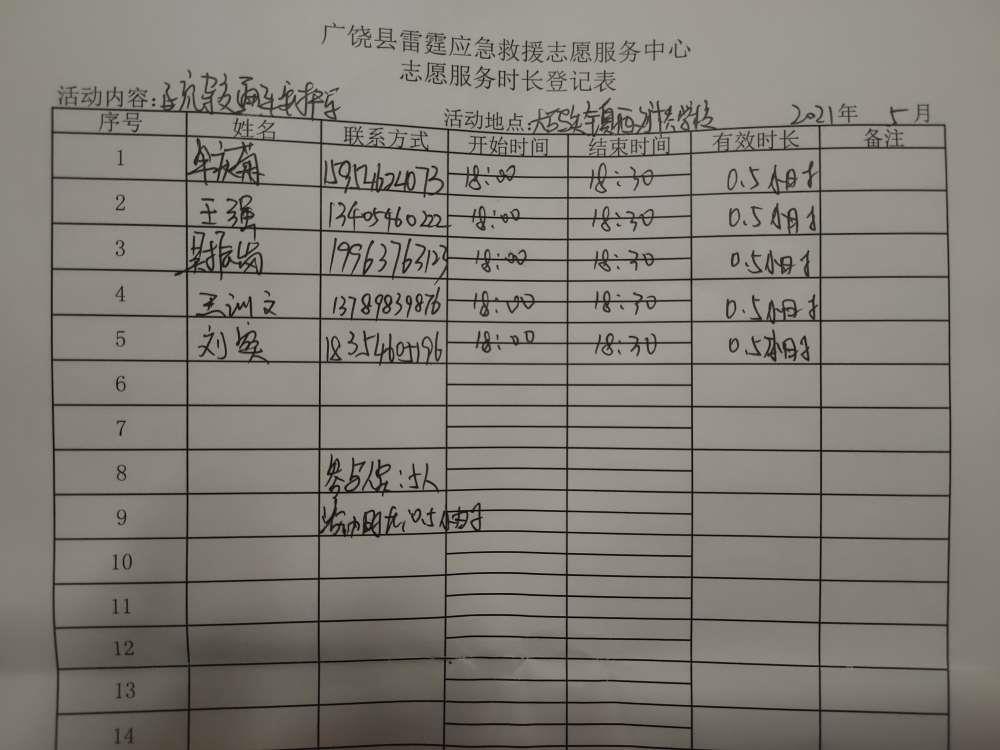 广饶县雷霆应急救援志愿服务中心
志愿服务时长登记表
活动内容:
活动地点: 学校 2021年 5月
序号 姓名 联系方式 开始时间 结束时间 有效时长 备注
1 15954624073 18:00 18:30 0.5小时
2 王强 13405460222 18:00 18:30 0.5小时
3 19963763123 18:00 18:30 0.5小时
4 王训文 13789839876 18:00 18:30 0.5小时
5 刘 18354605196 18:00 18:30 0.5小时
6
7
8 参与人员:5人
9 活动时长:0.5小时
10
11
12
13
14